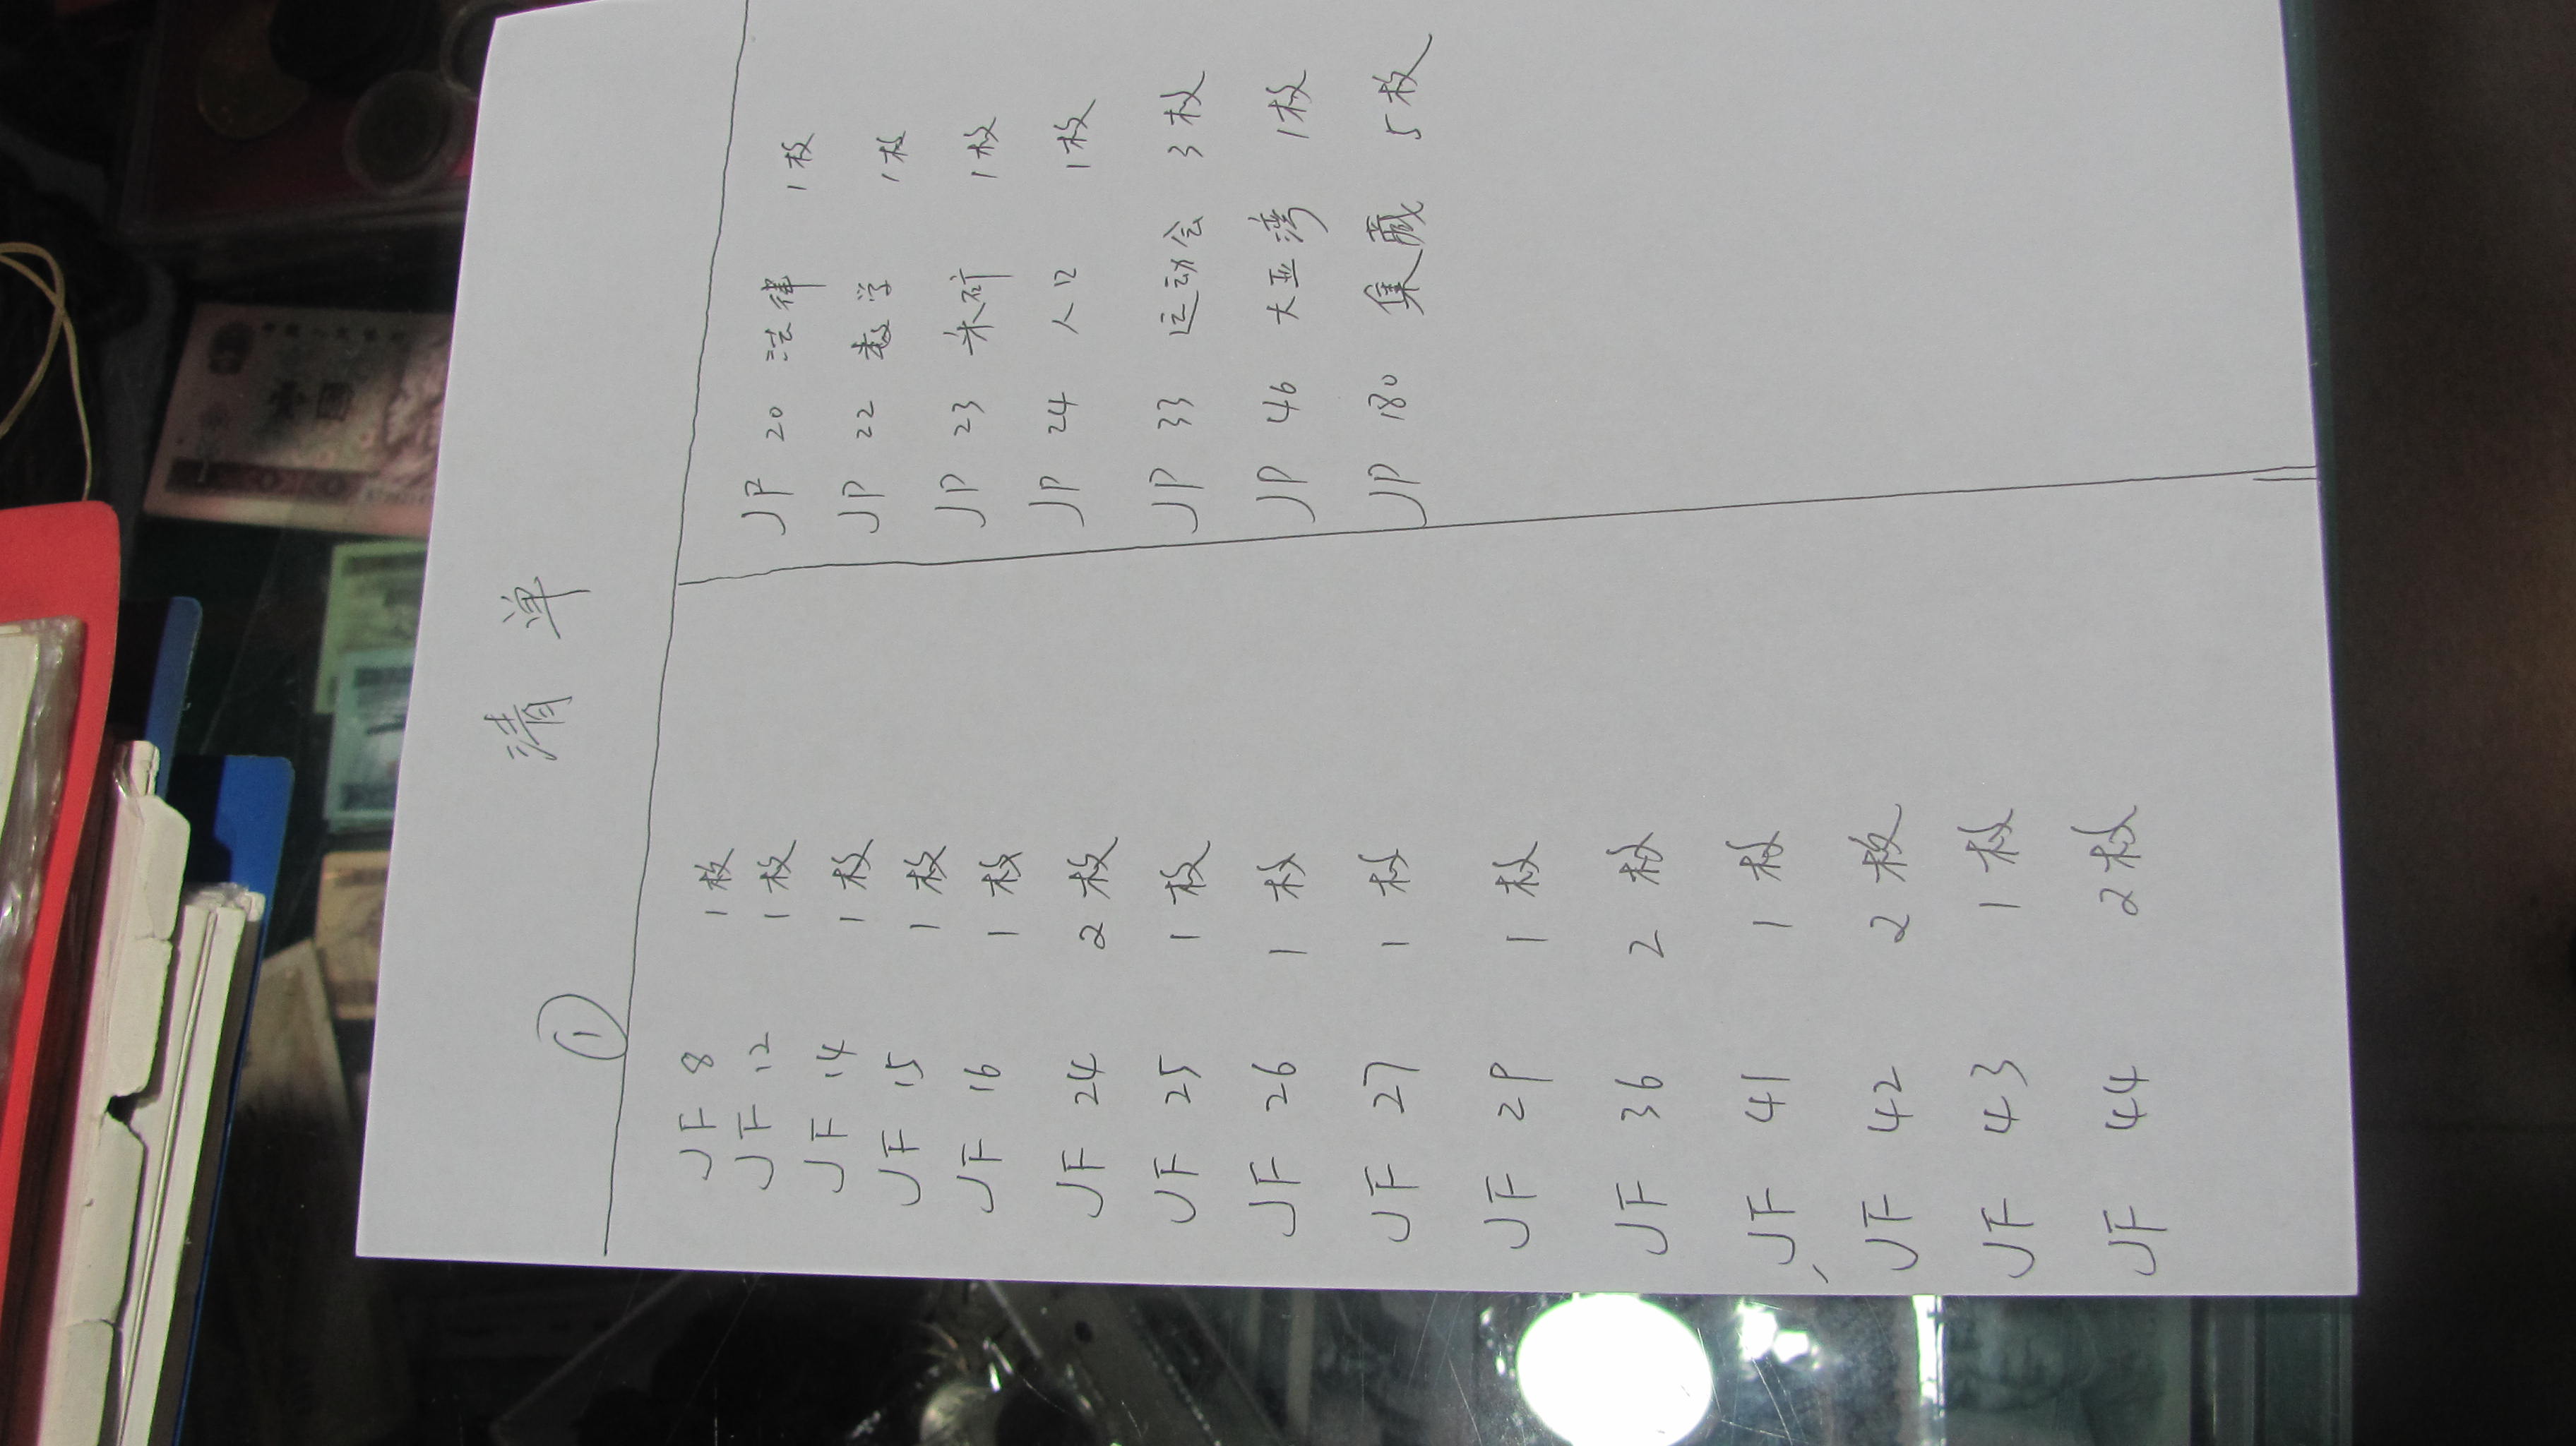 清单
①
JF 8 1枚
JF 12 1枚
JF 14 1枚
JF 15 1枚
JF 16 1枚
JF 24 2枚
JF 25 1枚
JF 26 1枚
JF 27 1枚
JF 29 1枚
JF 36 2枚
JF 41 1枚
JF 42 2枚
JF 43 1枚
JF 44 2枚
JP 20 法律 1枚
JP 22 数学 1枚
JP 23 1枚
JP 24 人口 1枚
JP 33 运动会 3枚
JP 46 大亚湾 1枚
JP 180 集藏 5枚